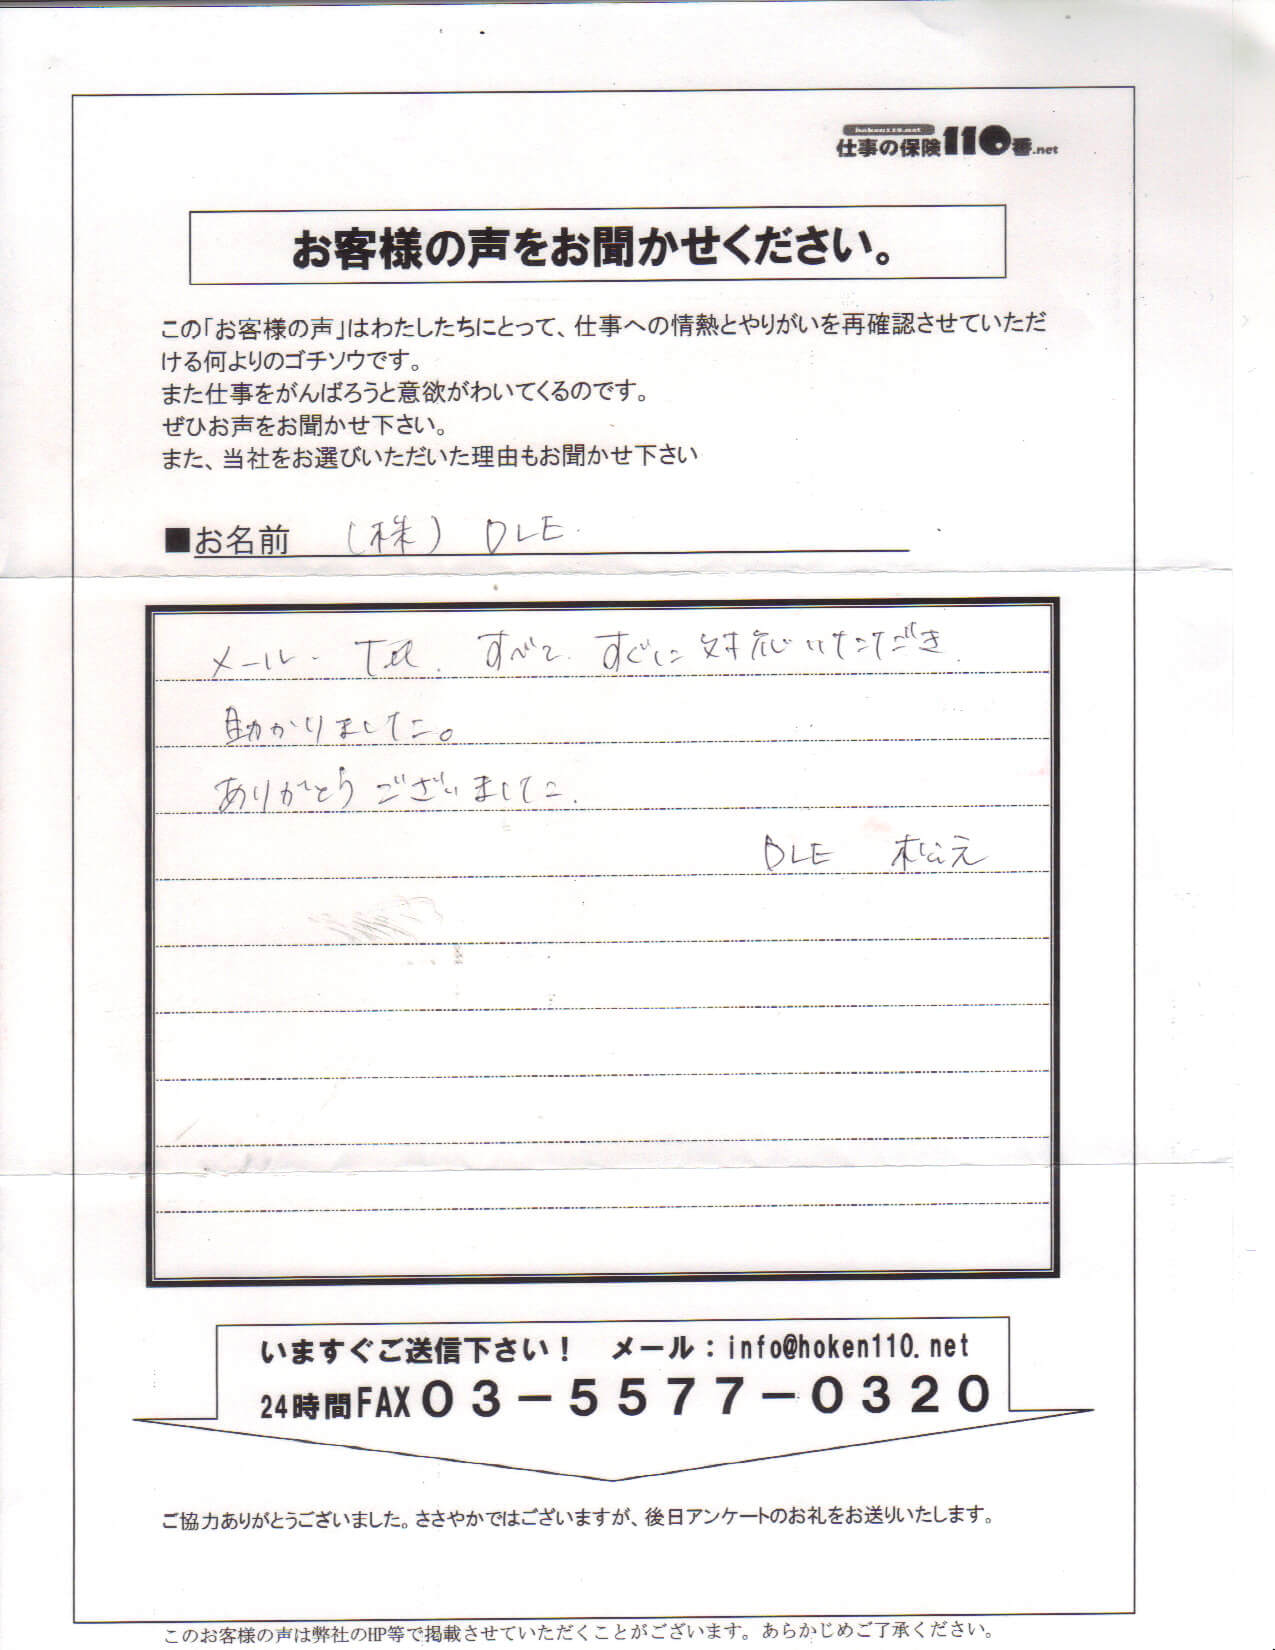 hoken110.net
仕事の保険110番.net
お客様の声をお聞かせください。
この「お客様の声」はわたしたちにとって、仕事への情熱とやりがいを再確認させていただ
ける何よりのゴチソウです。
また仕事をがんばろうと意欲がわいてくるのです。
ぜひお声をお聞かせ下さい。
また、当社をお選びいただいた理由もお聞かせ下さい
■お名前 (株) DLE
メール. Tel. すべて すぐに対応いただき
助かりました。
ありがとうございました.
DLE 松元
いますぐご送信下さい！ メール：info@hoken110.net
24時間FAX０３－５５７７－０３２０
ご協力ありがとうございました。ささやかではございますが、後日アンケートのお礼をお送りいたします。
このお客様の声は弊社のHP等で掲載させていただくことがございます。あらかじめご了承ください。